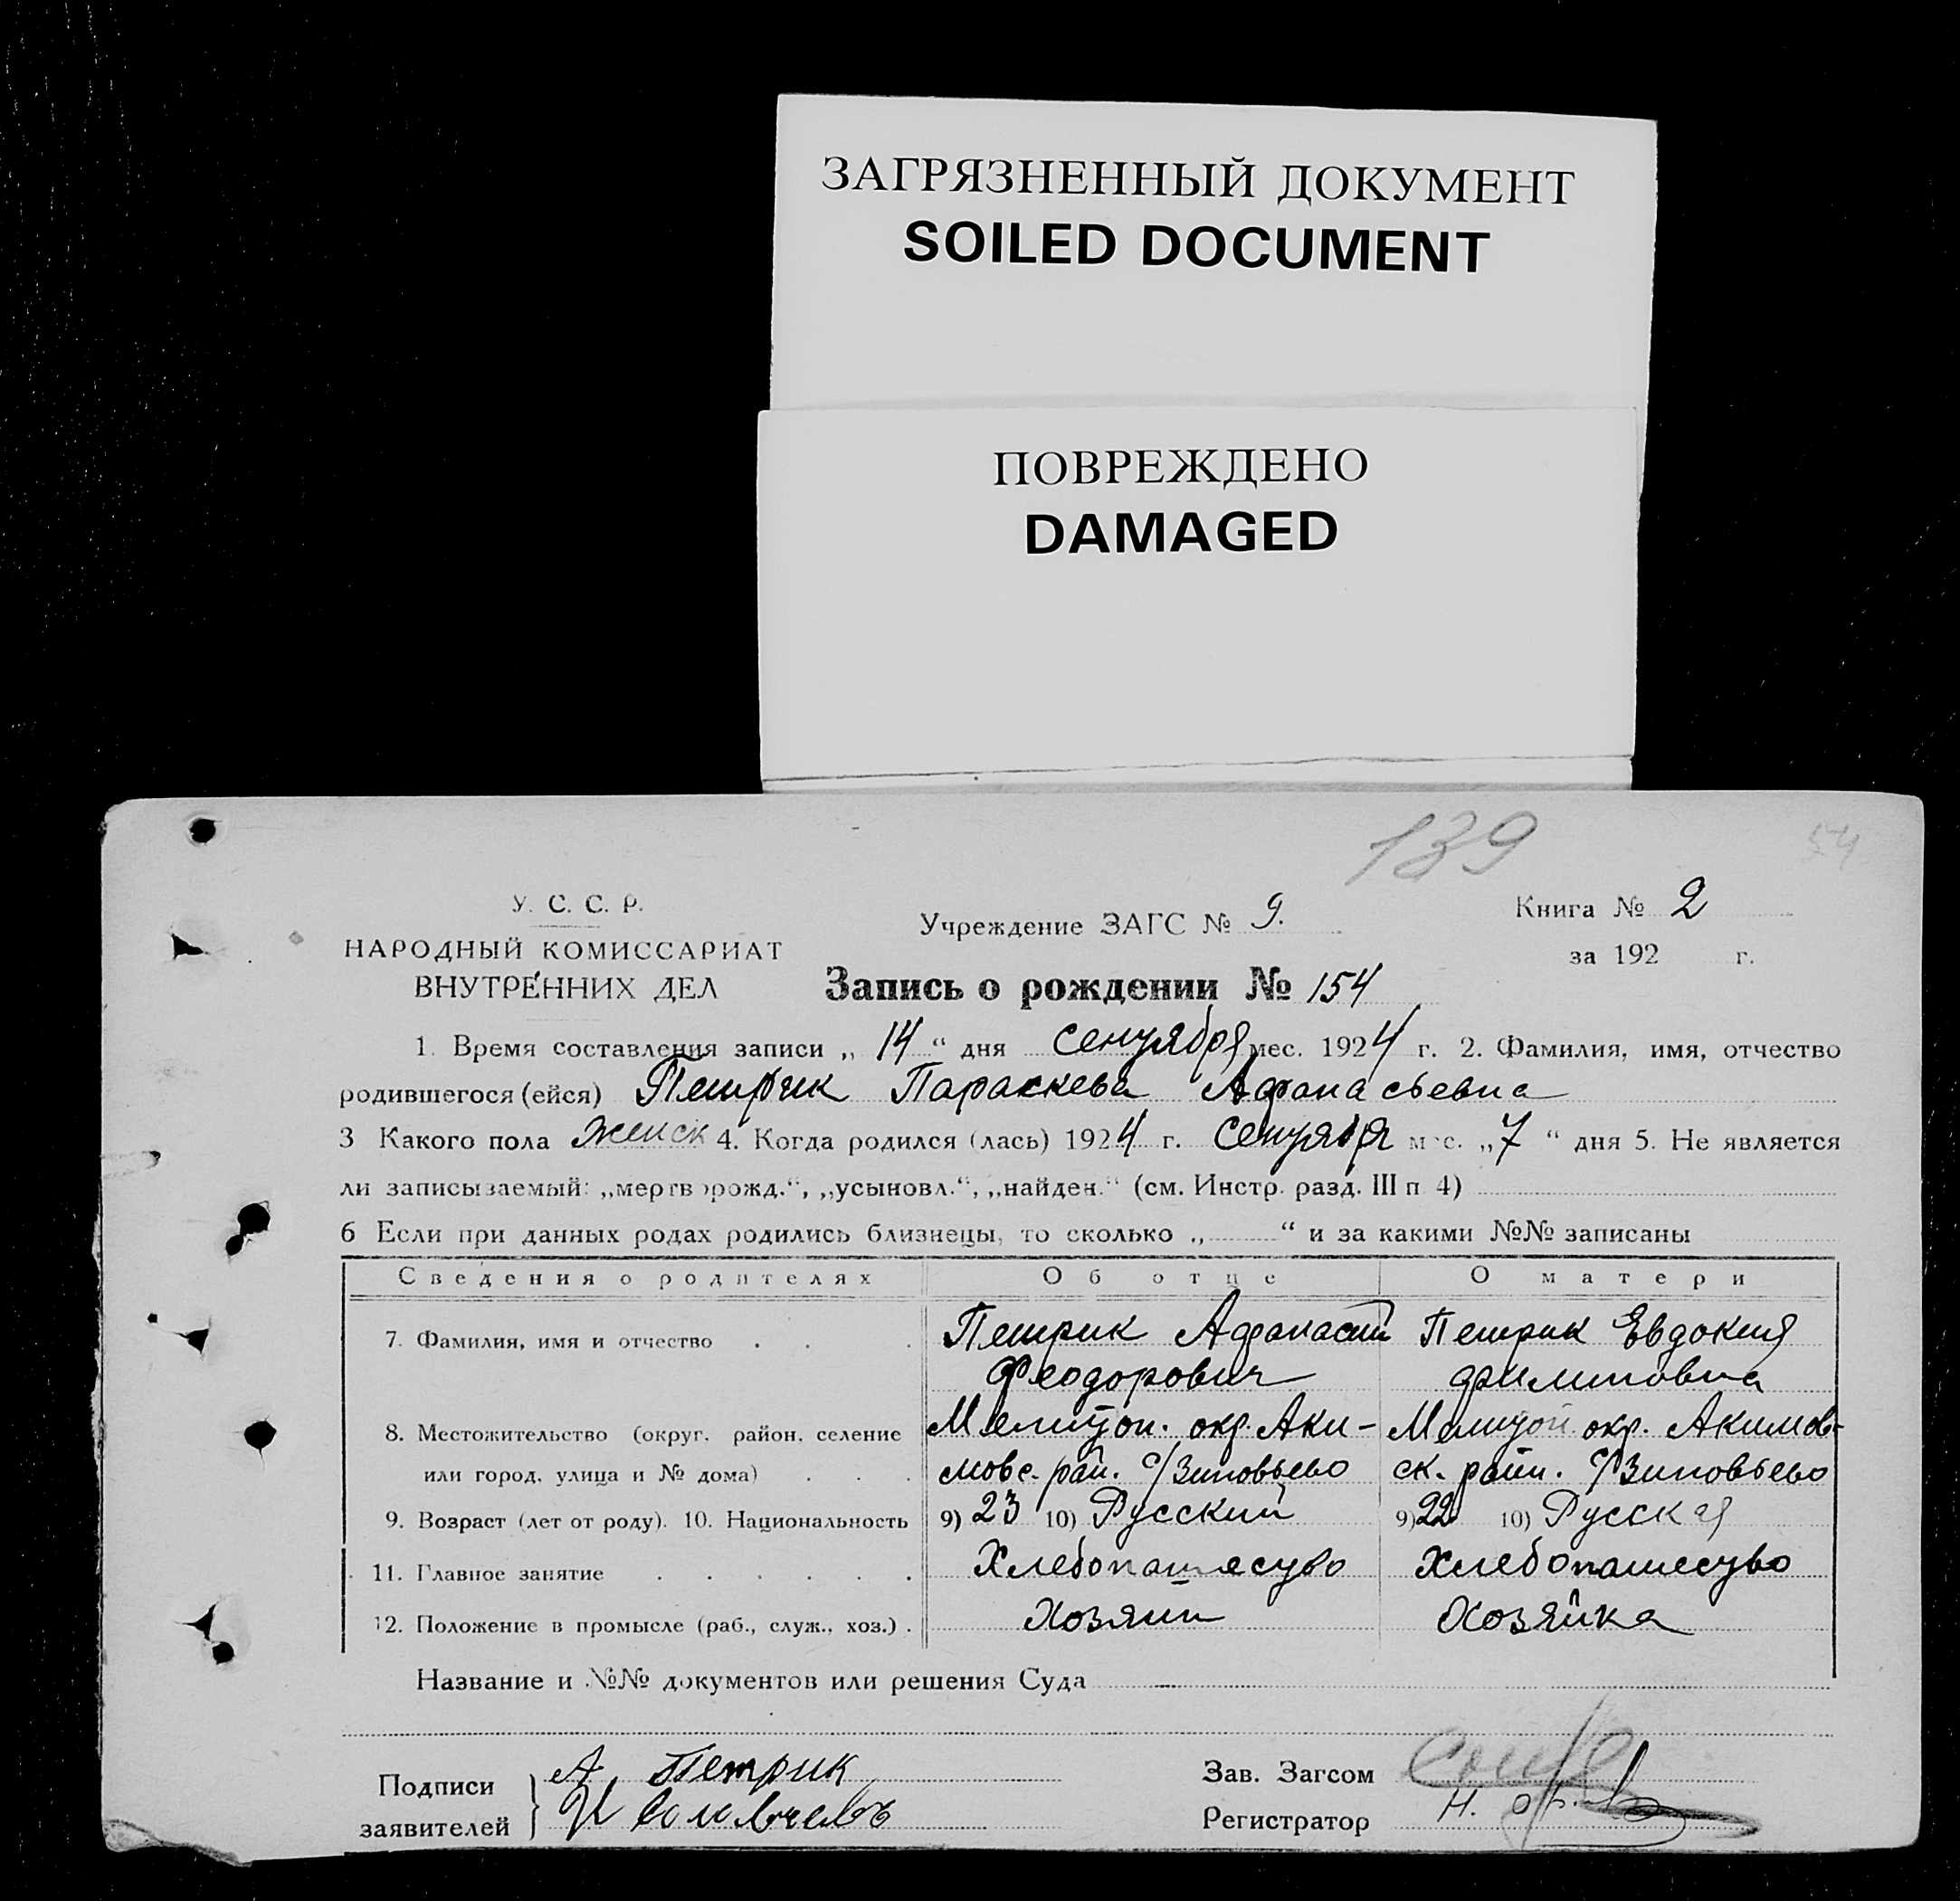 ЗАГРЯЗНЕННЫЙ ДОКУМЕНТ
SOILED DOCUMENT
ПОВРЕЖДЕНО
DAMAGED
139
54
У. С. С. Р.
НАРОДНЫЙ КОМИССАРИАТ
ВНУТРЕННИХ ДЕЛ
Учреждение ЗАГС № 9.
Книга № 2
за 192 г.
Запись о рождении № 154
1. Время составления записи „ 14 “ дня сентября мес. 1924 г. 2. Фамилия, имя, отчество
родившегося (ейся) Петрик Параскева Афанасьевна
3 Какого пола Женск 4. Когда родился (лась) 1924 г. сентября мес. „7“ дня 5. Не является
ли записываемый: „мертворожд.“, „усыновл.“, „найден.“ (см. Инстр. разд. III п 4)
6 Если при данных родах родились близнецы, то сколько „ “ и за какими №№ записаны
Сведения о родителях Об отце О матери
7. Фамилия, имя и отчество Петрик Афанасий Петрик Евдокия
Феодорович Филиповна
8. Местожительство (округ, район, селение Мелитоп. окр. Аки- Мелитоп. окр. Акимов-
или город, улица и № дома) мовс. рай. с/Зиновьево ск. райн. с/Зиновьево
9. Возраст (лет от роду). 10. Национальность 9) 23 10) Русский 9) 22 10) Русская
11. Главное занятие Хлебопашество Хлебопашество
12. Положение в промысле (раб., служ., хоз.) . Хозяин Хозяйка
Название и №№ документов или решения Суда
Подписи
заявителей
А Петрик
Зав. Загсом
Регистратор